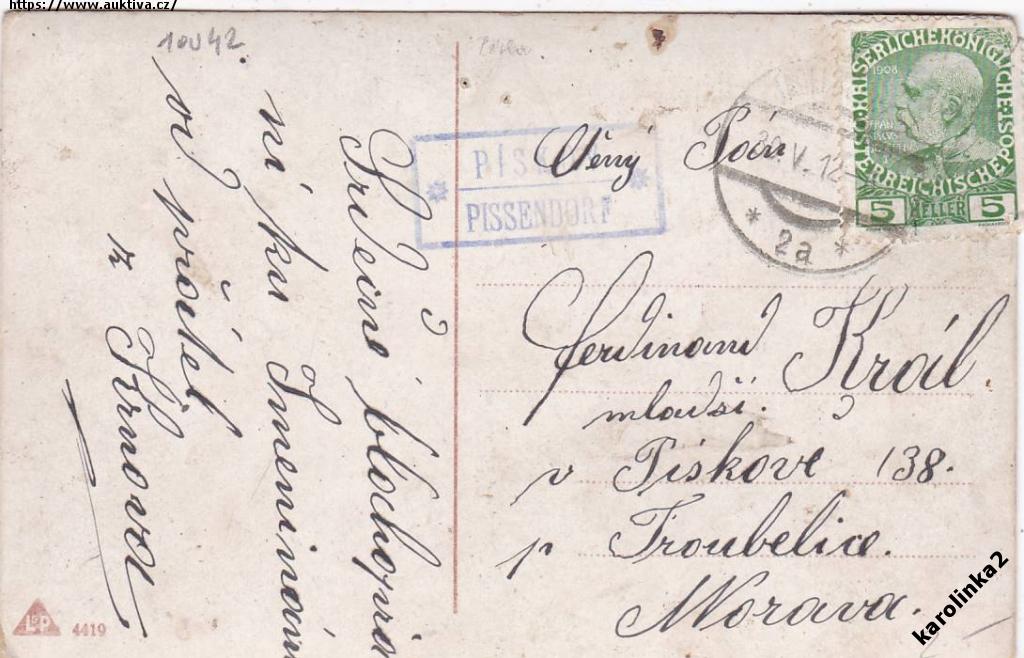 https://www.auktiva.cz/
10042
Srdečné blahopřá
ní ku Jmeninám
vš přátel
z Krnova
PÍS
PISSENDORF
Ctěný Pán
Ferdinand Král
mladší.
v Pískově 138.
p Troubelice.
Morava.
V. 12
* 2a *
KAISERLICHE KÖNIGLICHE ÖSTERREICHISCHE POST
1908
5 HELLER 5
L&P 4419
karolinka2